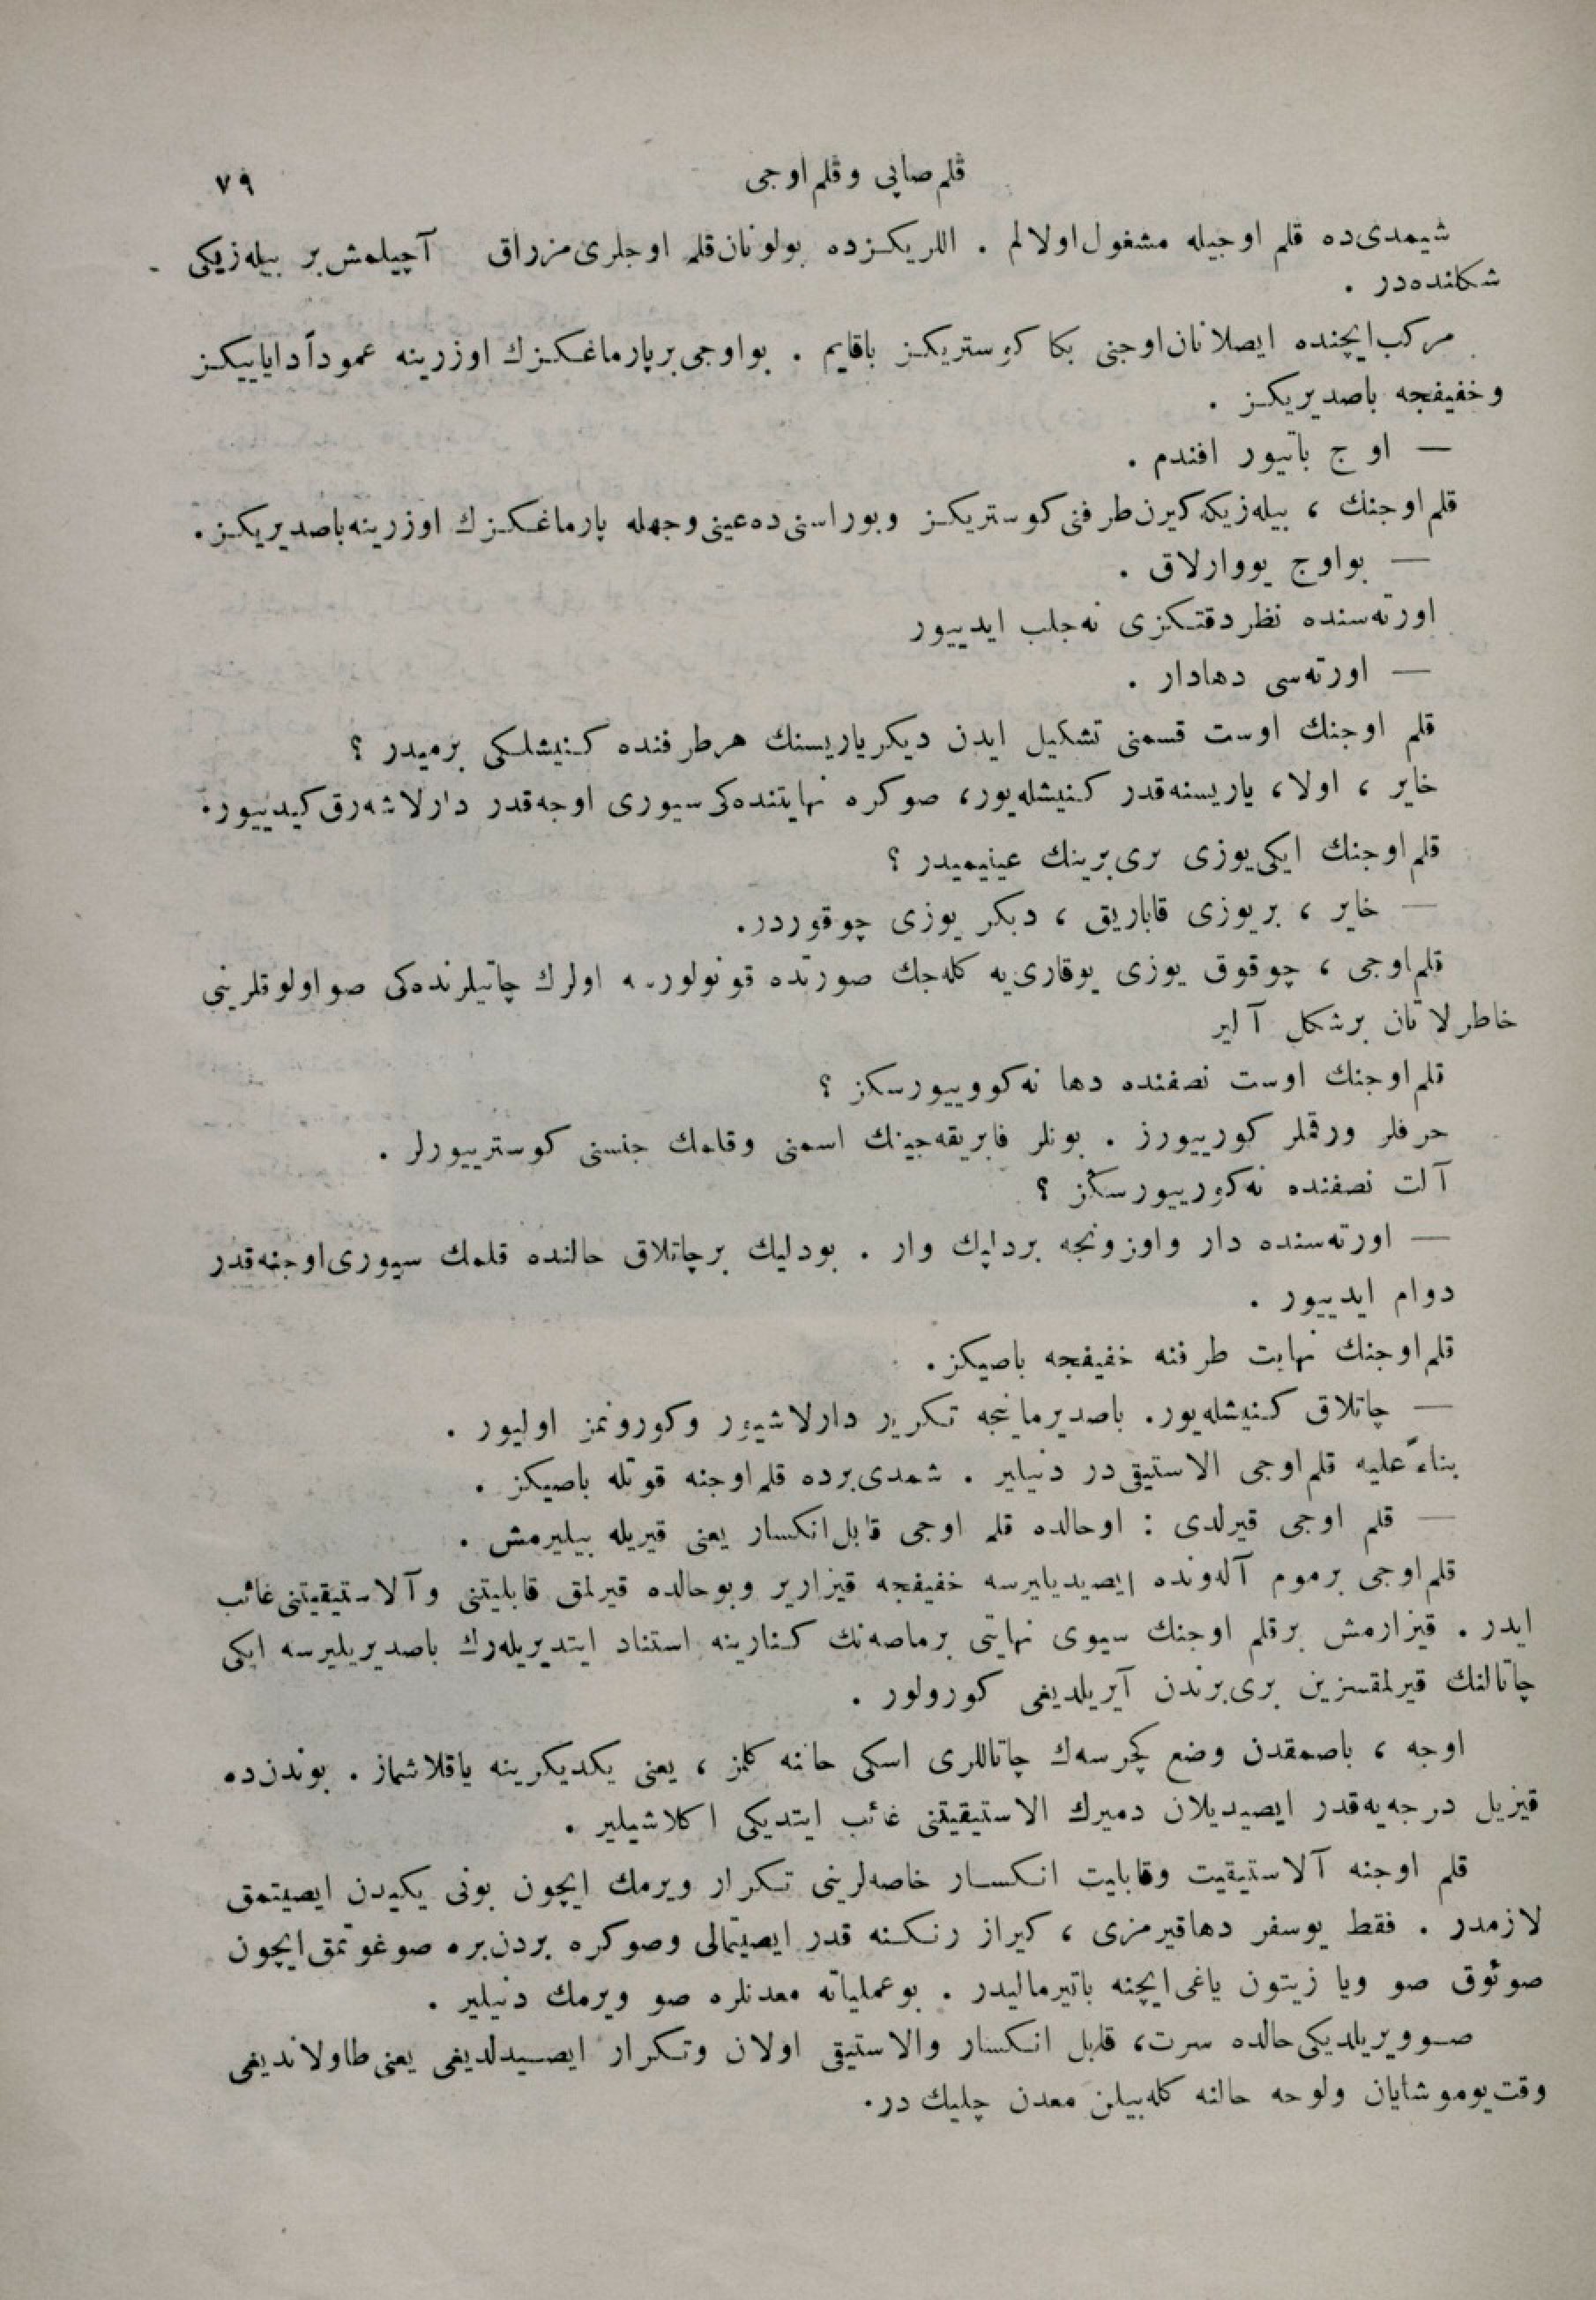 قلم صاپی و قلم اوجی
٧٩
شیمدی‌ده قلم اوجیله مشغول اولالم . اللریكزده بولونان قلم اوجلری مزراق آچیلمش بر بیله‌زیكی
شكلنده‌در .
مركب ایچنده ایصلانان اوجنی بكا كوستریكز باقایم . بو اوجی بر پارماغكزك اوزرینه عموداً دایاییكز
و خفیفجه باصدیریكز .
— اوج باتیور افندم .
قلم اوجنك ، بیله‌زیكه كیرن طرفنی كوستریكز وبوراسنی ده عینی وجهله پارماغكزك اوزرینه باصدیریكز .
— بو اوج یووارلاق .
اورته‌سنده نظر دقتكزی نه جلب ایدییور
— اورته‌سی دها دار .
قلم اوجنك اوست قسمنی تشكیل ایدن دیكر یاریسنك هر طرفنده كنیشلكی برمیدر ؟
خایر ، اولا ، یاریسنه قدر كنیشله‌یور ، صوكره نهایتنده‌كی سیوری اوجه قدر دارلاشه‌رق كیدییور .
قلم اوجنك ایكی یوزی بری برینك عینیمیدر ؟
— خایر ، بر یوزی قاباریق ، دیكر یوزی چوقوردر .
قلم اوجی ، چوقوق یوزی یوقاری‌یه كله‌جك صورتده قونولورسه اولرك چاتیلرنده‌كی صو اولوقلرینی
خاطرلاتان بر شكل آلیر
قلم اوجنك اوست نصفنده دها نه كووییورسكز ؟
حرفلر ورقملر كورییورز . بونلر فابریقه‌جینك اسمنی وقلمك جنسنی كوسترییورلر .
آلت نصفنده نه كورییورسكز ؟
— اورته‌سنده دار واوزونجه بر دلیك وار . بو دلیك بر چاتلاق حالنده قلمك سیوری اوجنه قدر
دوام ایدییور .
قلم اوجنك نهایت طرفنه خفیفجه باصیكز .
— چاتلاق كنیشله‌یور . باصدیرماینجه تكرار دارلاشییور وكورونمز اولیور .
بناءً علیه قلم اوجی الاستیقی در دنیلیر . شمدی برده قلم اوجنه قوتله باصیكز .
— قلم اوجی قیرلدی : اوحالده قلم اوجی قابل انكسار یعنی قیریله بیلیرمش .
قلم اوجی بر موم آلونده ایصیدیلیرسه خفیفجه قیزاریر وبوحالده قیرلمق قابلیتنی وآلاستیقیتنی غائب
ایدر . قیزارمش بر قلم اوجنك سیوی نهایتی بر ماصه‌نك كنارینه استناد ایتدیریله‌رك باصدیریلیرسه ایكی
چاتالنك قیرلمقسزین بری برندن آیریلدیغی كورولور .
اوجه ، باصمقدن وضع كچرسه‌ك چاتاللری اسكی حالنه كلمز ، یعنی یكدیكرینه یاقلاشماز . بوندن ده
قیزیل درجه‌یه قدر ایصیدیلان دمیرك الاستیقیتنی غائب ایتدیكی اكلاشیلیر .
قلم اوجنه آلاستیقیت وقابلیت انكسار خاصه‌لرینی تكرار ویرمك ایچون بونی یكیدن ایصیتمق
لازمدر . فقط بوسفر دها قیرمزی ، كیراز رنكنه قدر ایصیتمالی وصوكره بردن بره صوغوتمق ایچون
صوئوق صو ویا زیتون یاغی ایچنه باتیرمالیدر . بو عملیاته معدنلره صو ویرمك دنیلیر .
صو ویریلدیكی حالده سرت ، قابل انكسار والاستیقی اولان وتكرار ایصیدلدیغی یعنی طاولاندیغی
وقت یوموشایان ولوحه حالنه كله‌بیلن معدن چلیك در .